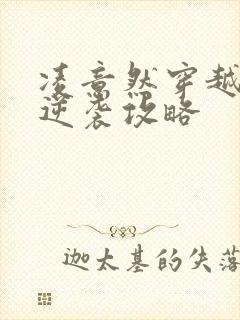 凌意然穿越
逆袭攻略
迦太基的失落